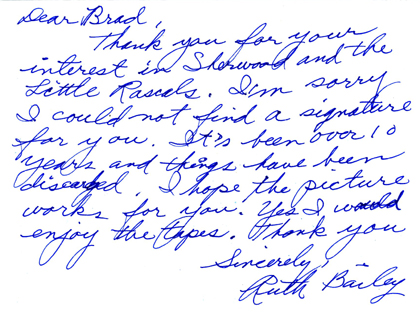 Dear Brad,
Thank you for your
interest in Sherwood and the
Little Rascals. I'm sorry
I could not find a signature
for you. It's been over 10
years and things have been
discarded. I hope the picture
works for you. Yes I would
enjoy the tapes. Thank you
Sincerely,
Ruth Bailey